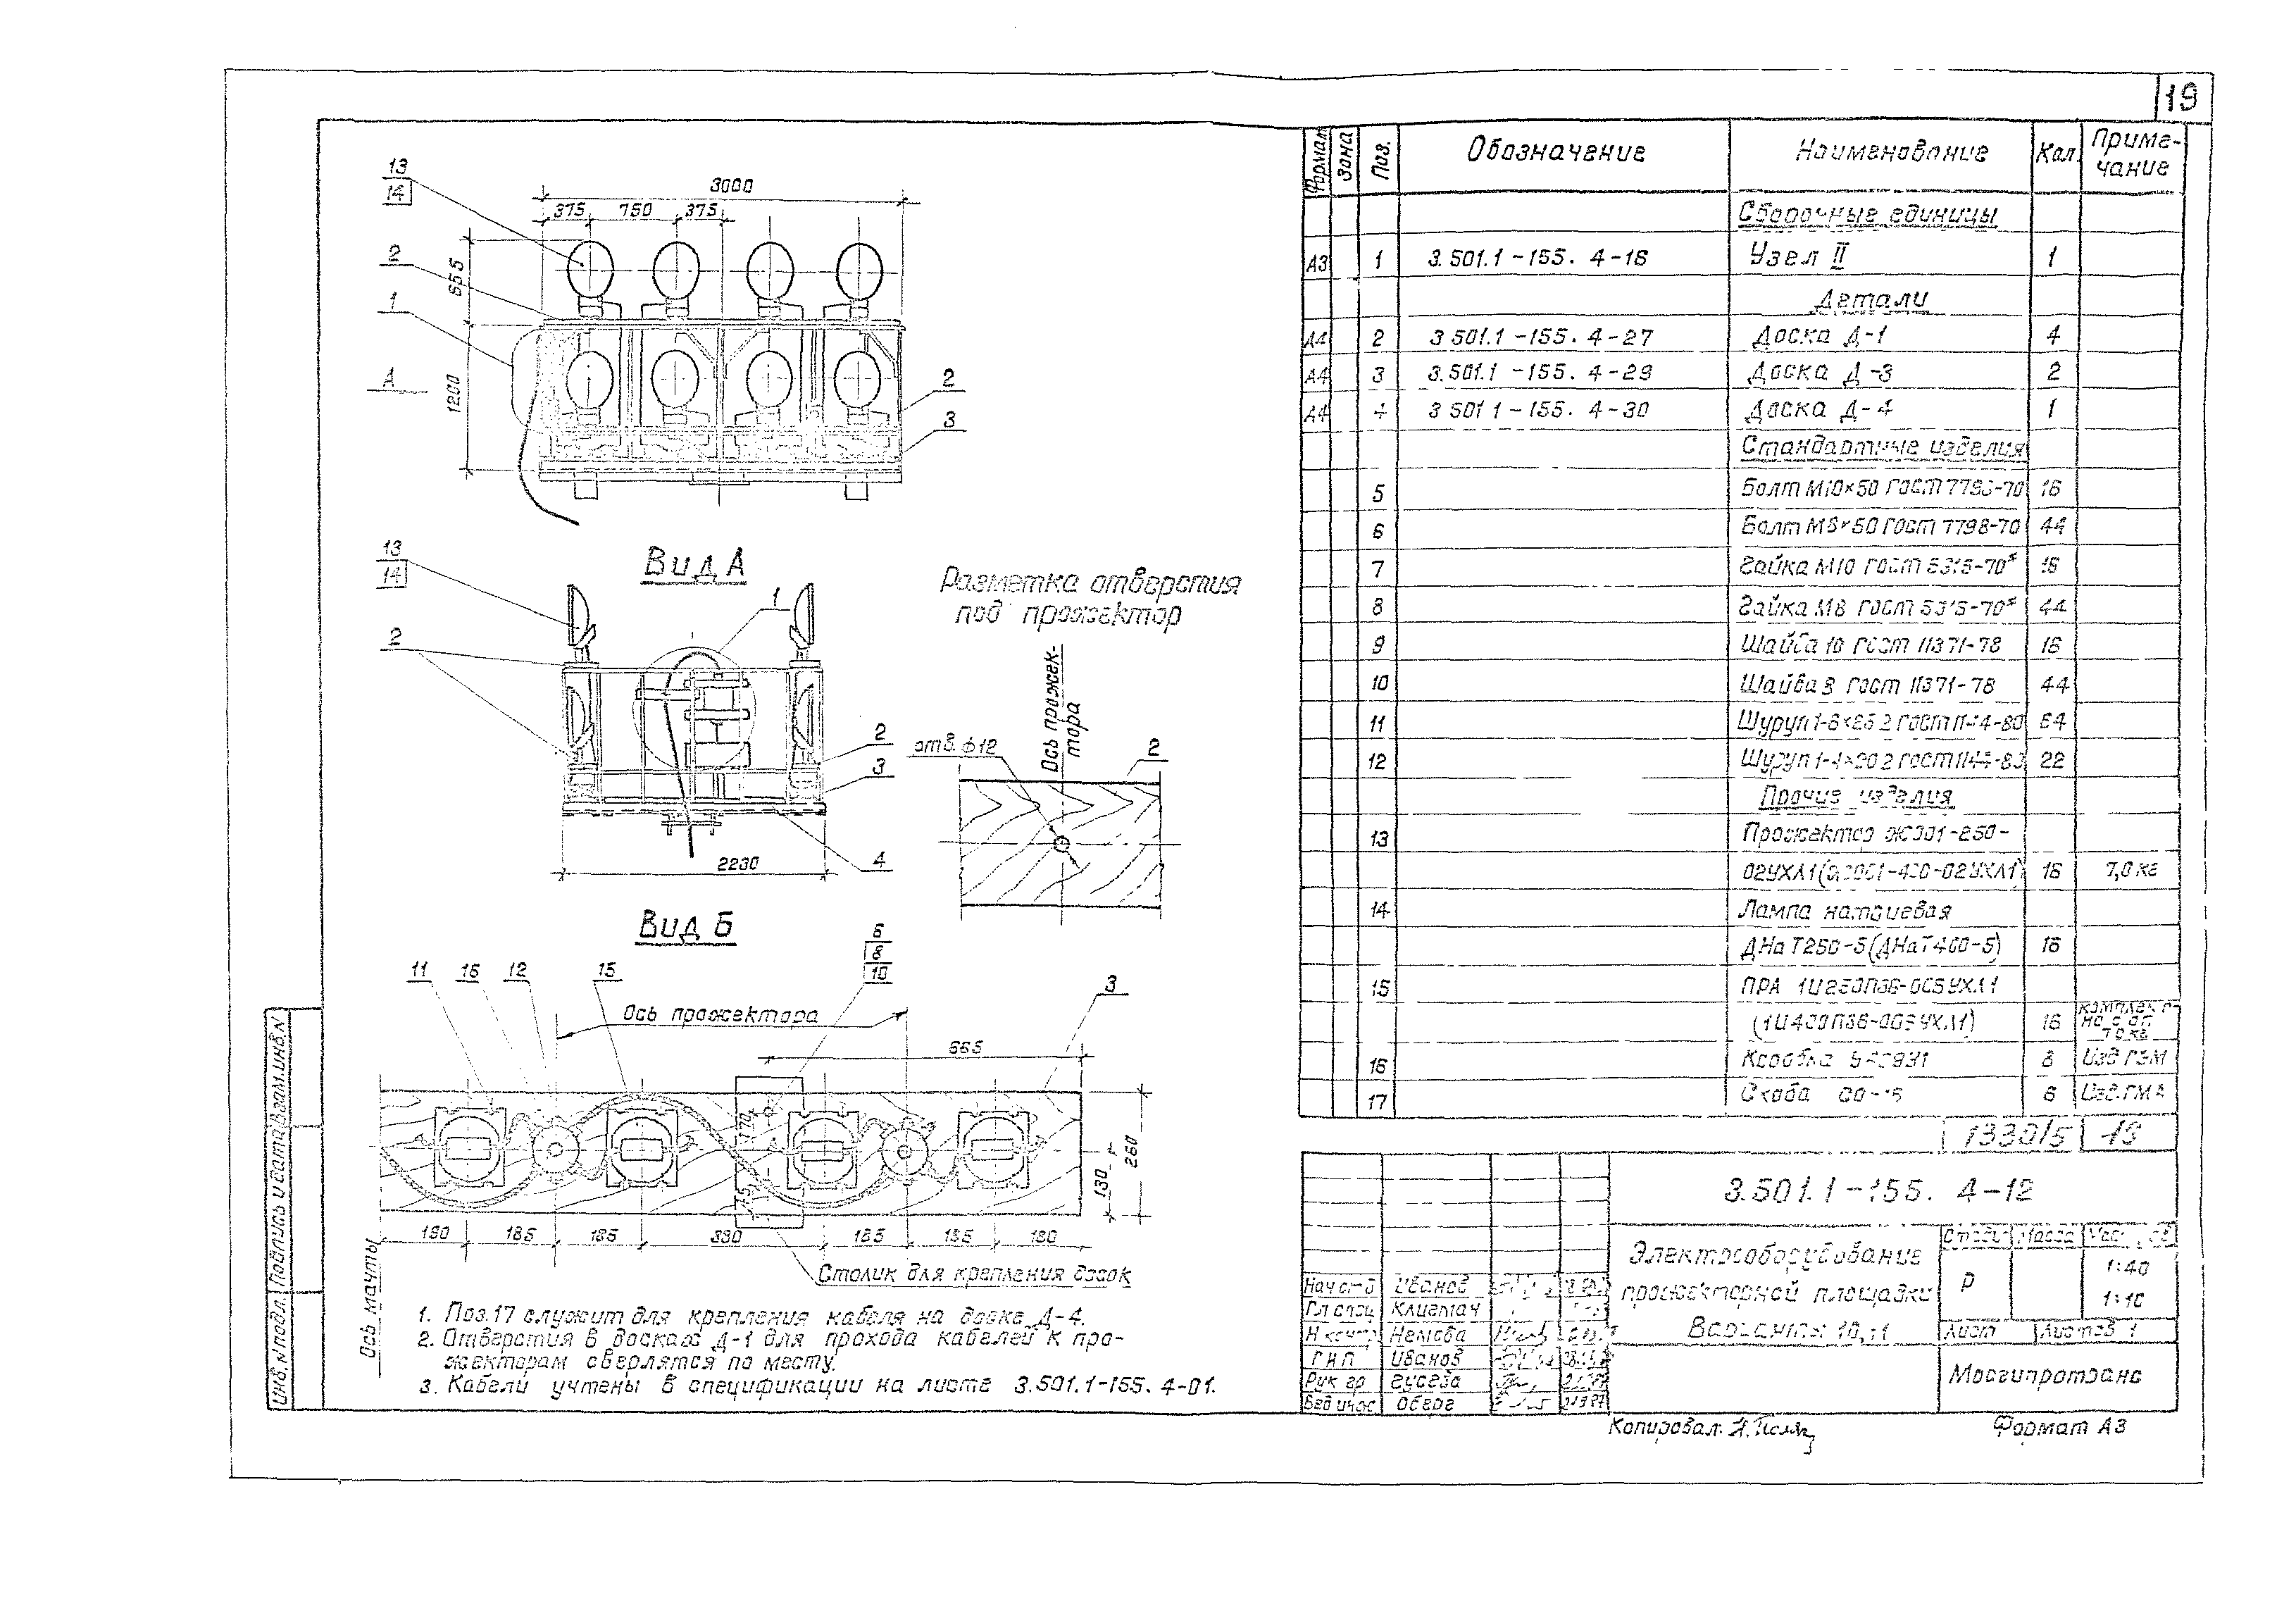 19
13
14
2
1
А
3000
375 750 375
655
1200
2
3
Вид А
13
14
2
1
2
3
4
2230
Разметка отверстия
под прожектор
Ось прожек-
тора
отв. ф12
2
Вид Б
11 16 12 15
6
8
10
3
Ось прожектора
665
170
75
130
260
190 185 185 330 185 185 180
Ось мачты
Столик для крепления досок
1. Поз.17 служит для крепления кабеля на доске Д-4.
2. Отверстия в досках Д-1 для прохода кабелей к про-
жекторам сверлятся по месту.
3. Кабели учтены в спецификации на листе 3.501.1-155.4-01.
Формат Зона Поз. Обозначение Наименование Кол. Приме-
чание
Сборочные единицы
А3 1 3.501.1-155.4-16 Узел II 1
Детали
А4 2 3 501.1-155.4-27 Доска Д-1 4
А4 3 3.501.1-155.4-29 Доска Д-3 2
А4 4 3 501 1-155.4-30 Доска Д-4 1
Стандартные изделия
5 Болт М10×50 ГОСТ 7798-70 16
6 Болт М8×50 ГОСТ 7798-70 44
7 Гайка М10 ГОСТ 5915-70* 16
8 Гайка М8 ГОСТ 5915-70* 44
9 Шайба 10 ГОСТ 11371-78 16
10 Шайба 8 ГОСТ 11371-78 44
11 Шуруп ГОСТ 64
12 Шуруп ГОСТ 1144-80 22
Прочие изделия
13 Прожектор
16 7,0 кг
14 Лампа натриевая
ДНаТ250-5(ДНаТ400-5) 16
15 ПРА
16
комплект
16 Коробка 8 Изд. ГЭМ
17 Скоба 6
1330/5
3.501.1-155. 4-12
Электрооборудование
прожекторной площадки
Варианты 10,11
Масса
Р
1:40
1:10
Лист Листов 1
Мосгипротранс
Нач отд Иванов
Гл спец Клигман
Н контр Немова
ГИП Иванов
Рук гр Гусева
Вед инж
Инв. N подл. Подпись и дата Взам. инв. N
Копировал:
Формат А3